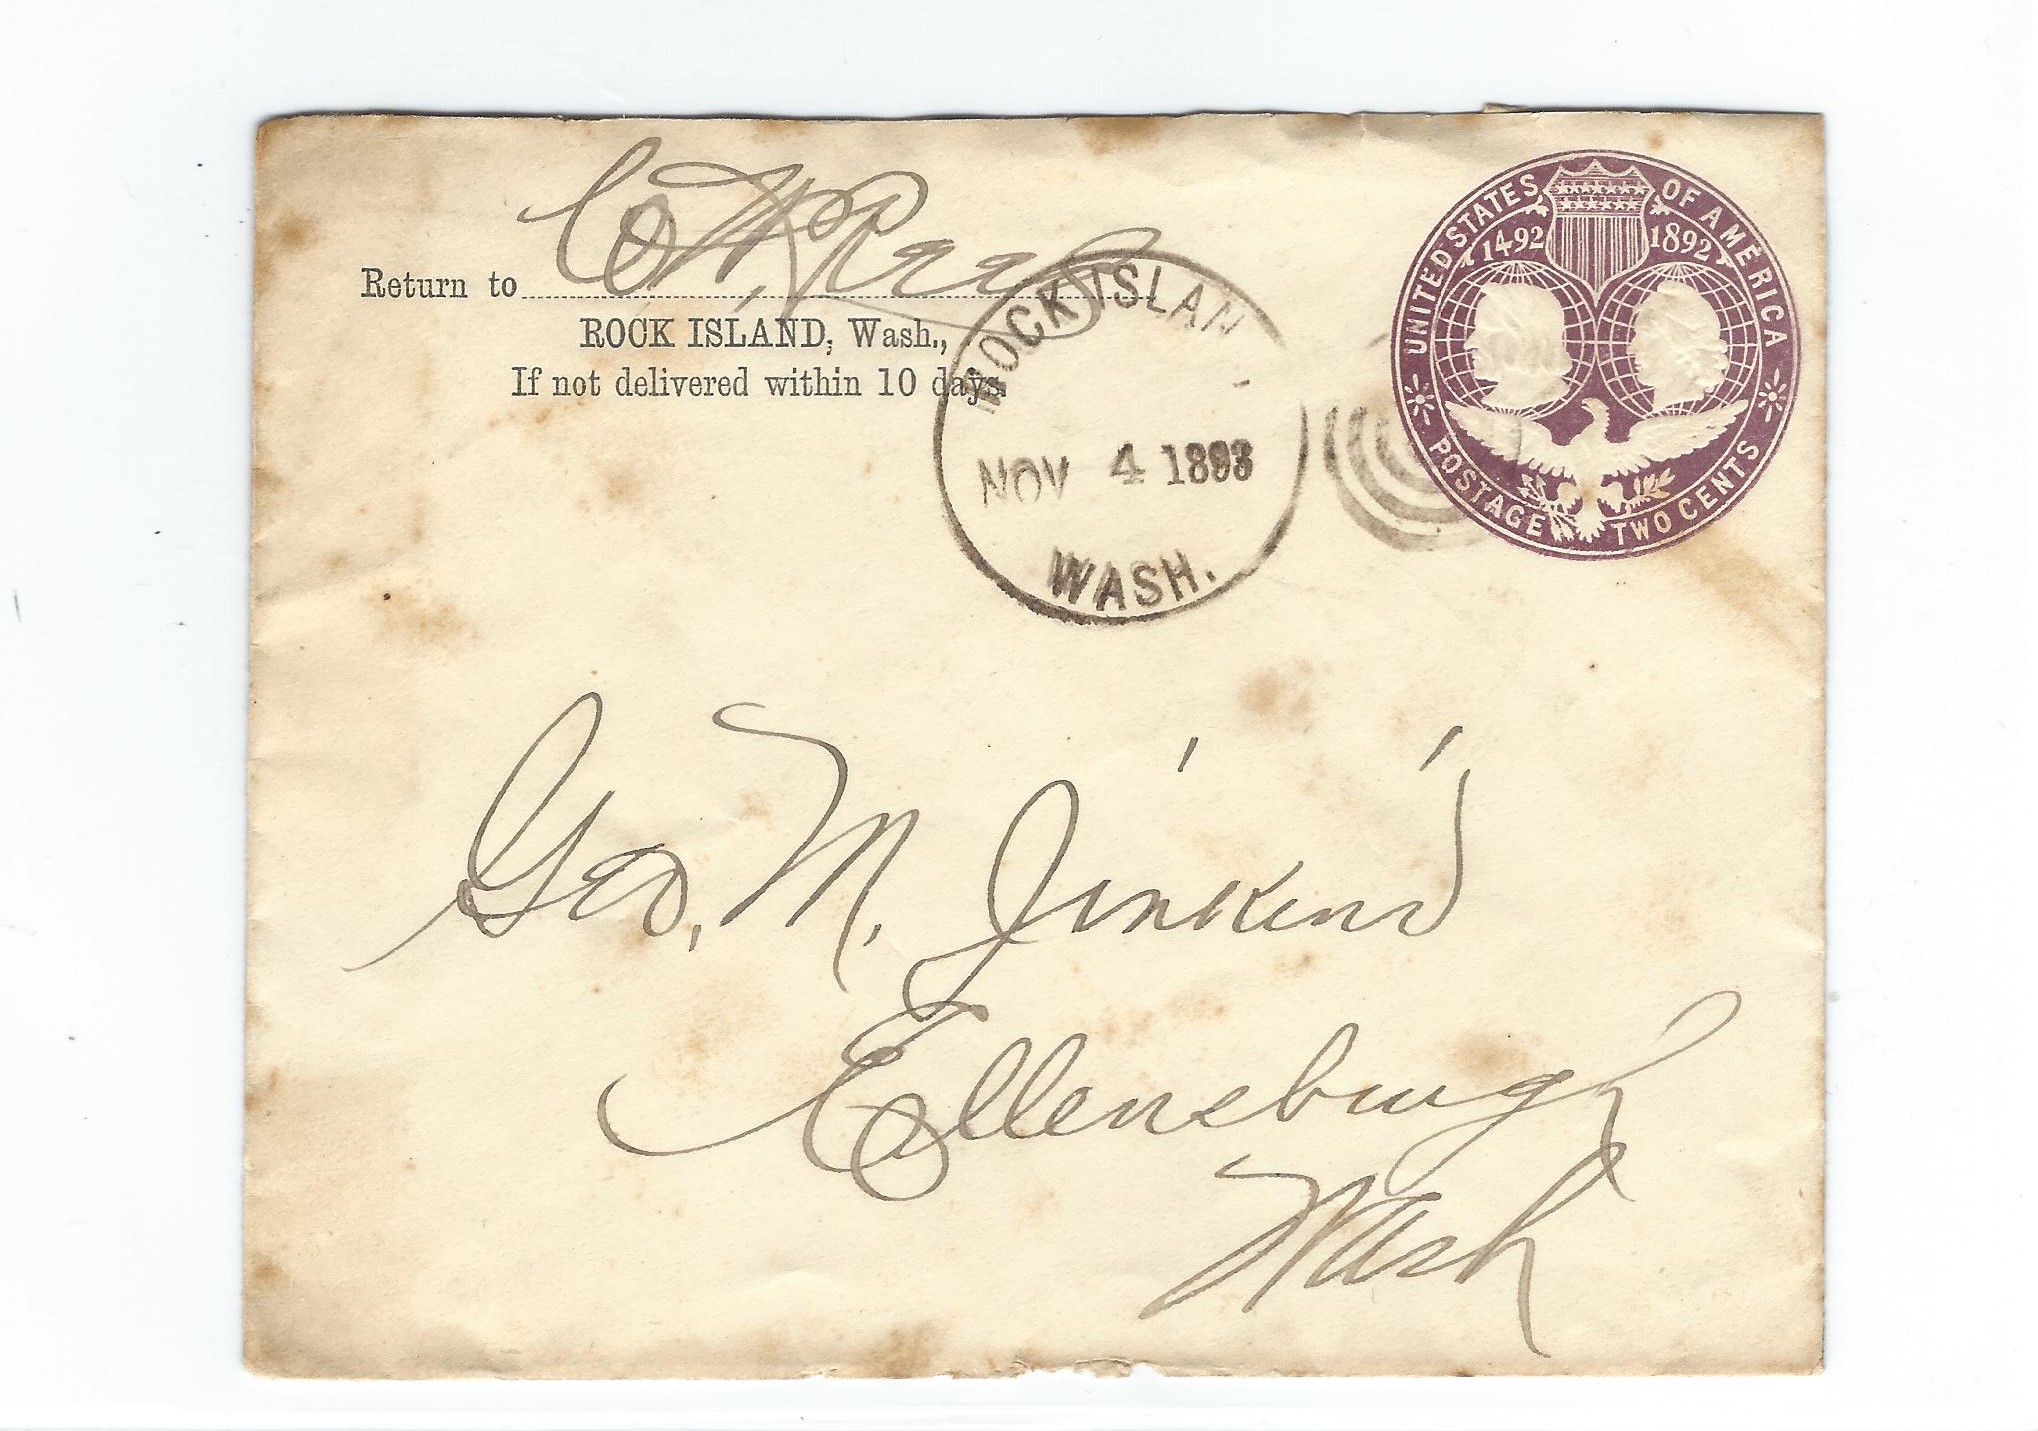 Return to
ROCK ISLAND, Wash.,
If not delivered within 10 days.
ROCK ISLAN
NOV 4 1893
WASH.
UNITED STATES OF AMERICA
1492 1892
POSTAGE TWO CENTS
Geo. M. Jinkins
Ellensburgh
Wash